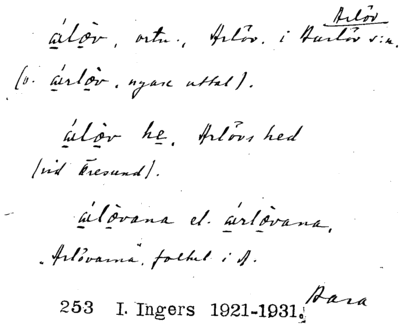 Arlöv
álòv, ortn., Arlöv i Burlöv s:n.
(o. árlòv, nyare uttal).
álòv he, Arlövs hed
(vid Öresund).
álòvana el. árlòvana,
"Arlövarna", folket i A.
Bara
253 I. Ingers 1921-1931.